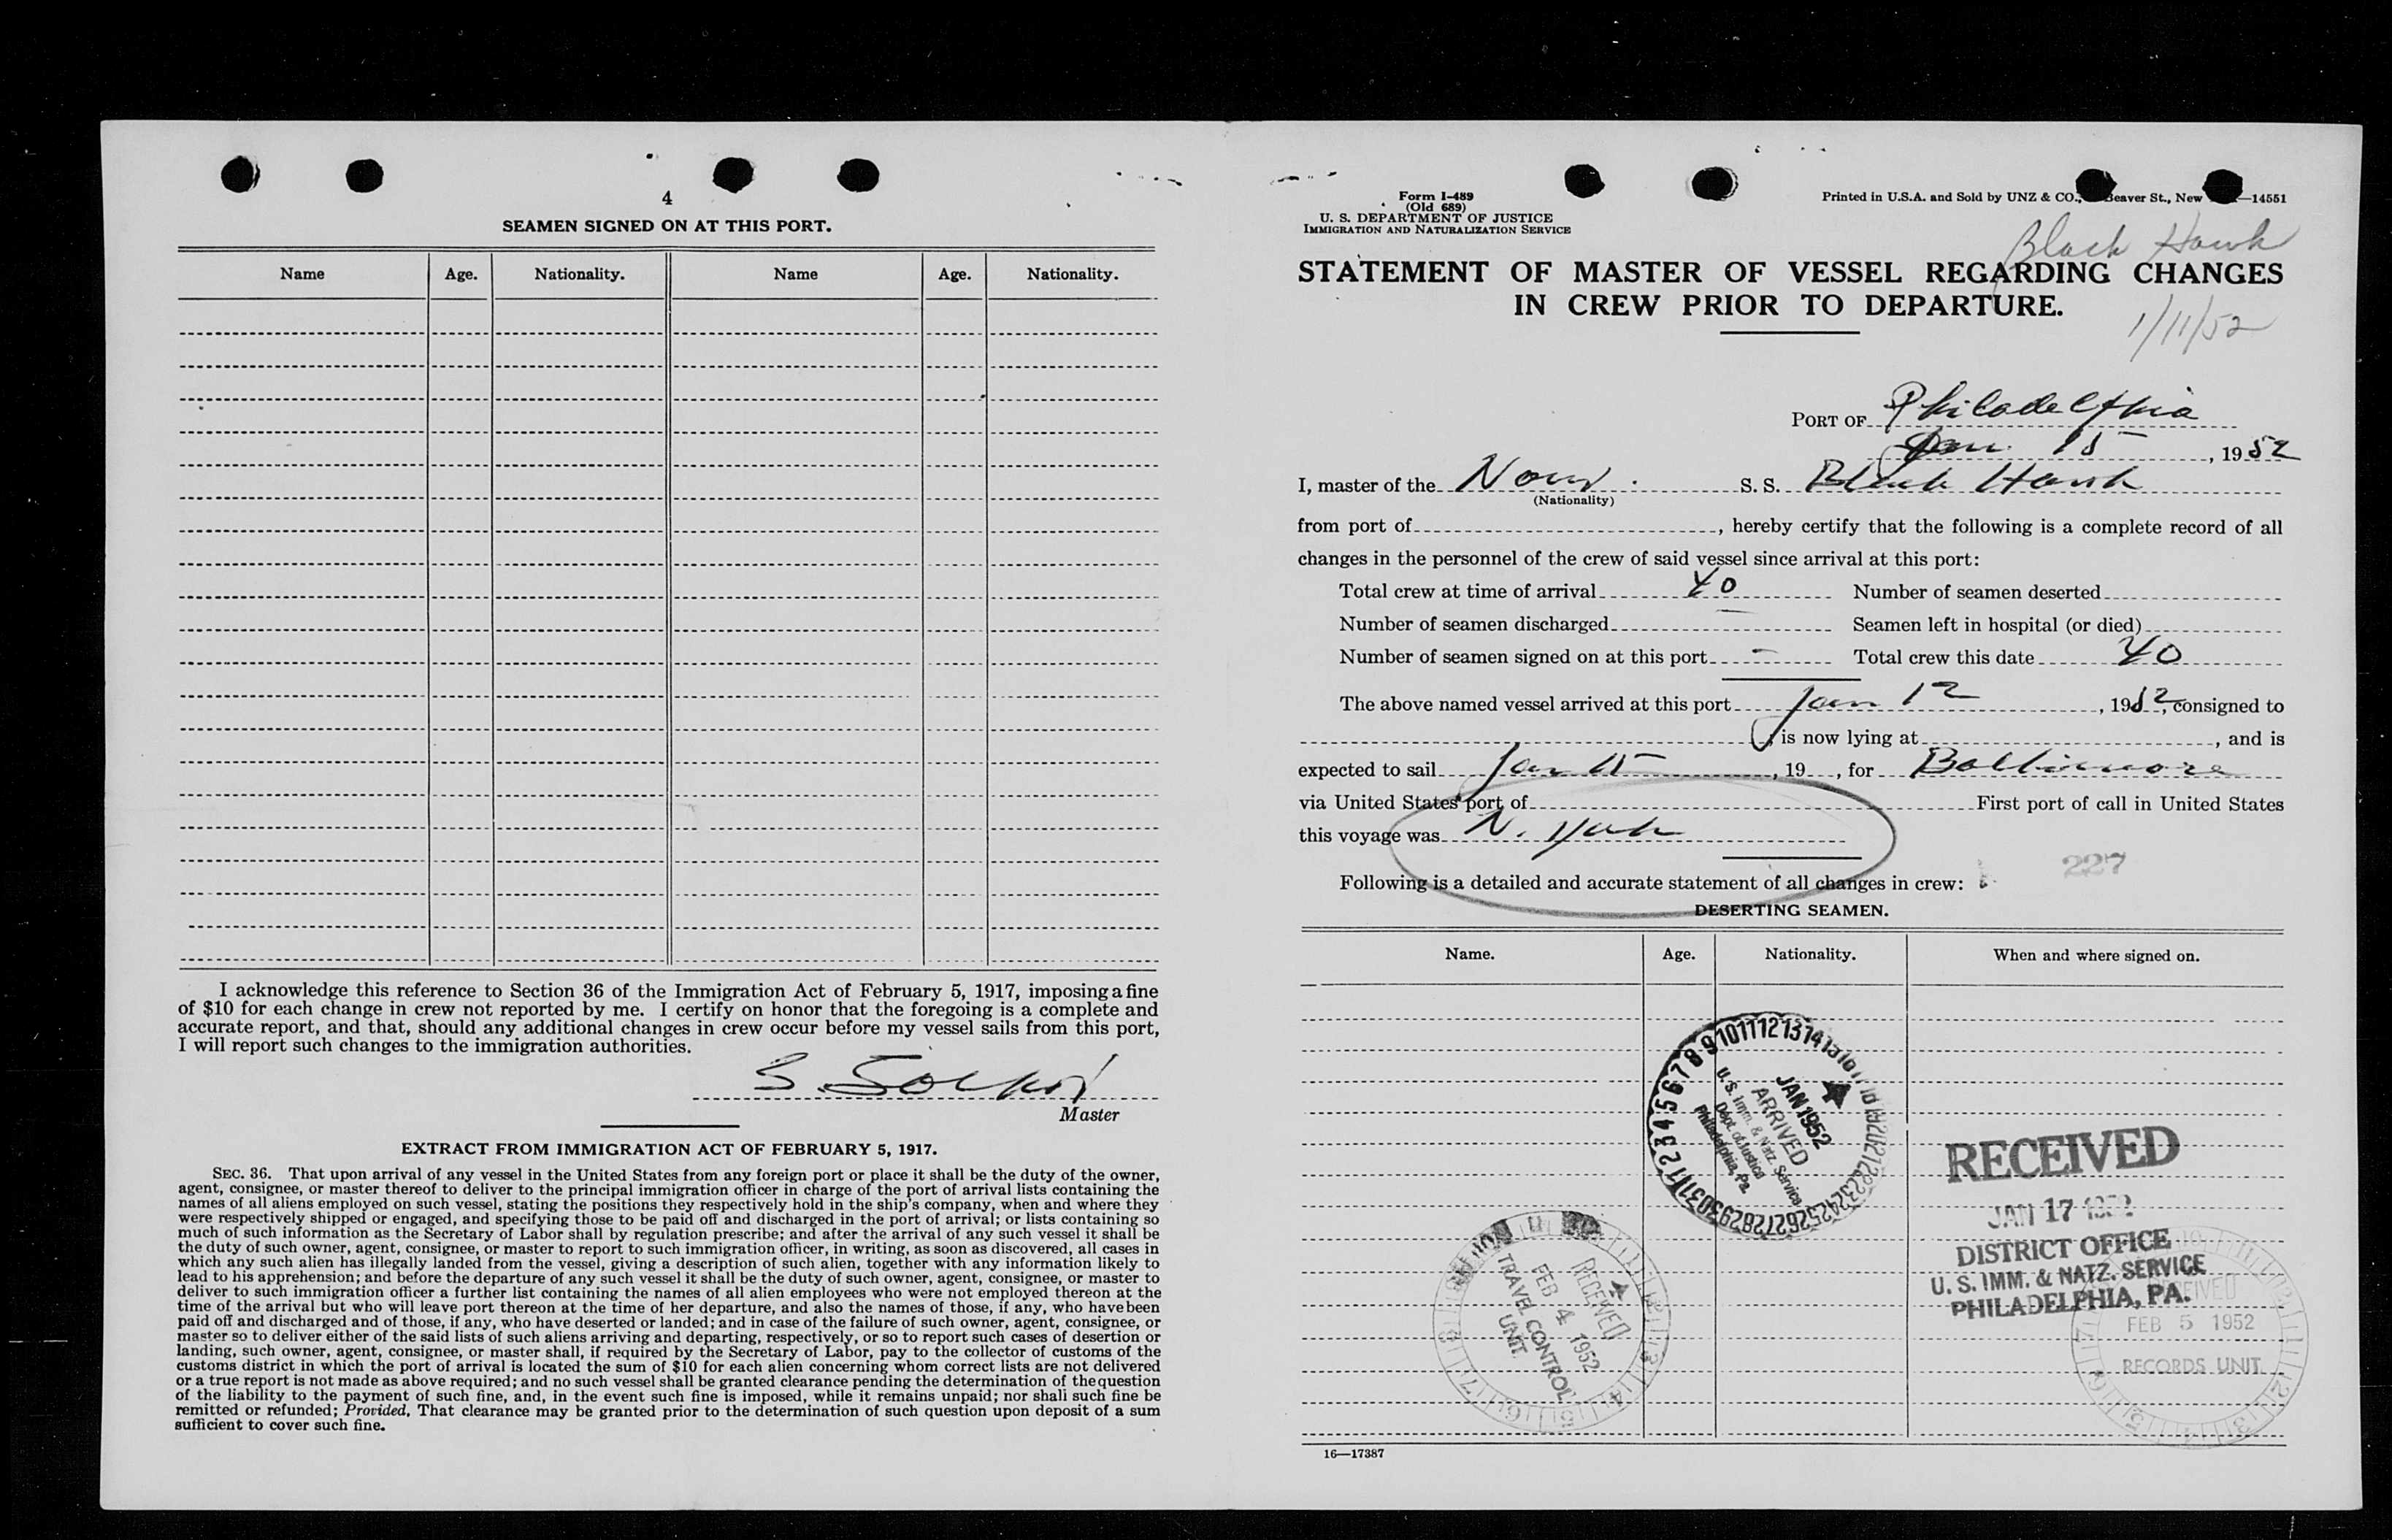 4
SEAMEN SIGNED ON AT THIS PORT.
Name Age. Nationality. Name Age. Nationality.
I acknowledge this reference to Section 36 of the Immigration Act of February 5, 1917, imposing a fine
of $10 for each change in crew not reported by me. I certify on honor that the foregoing is a complete and
accurate report, and that, should any additional changes in crew occur before my vessel sails from this port,
I will report such changes to the immigration authorities.
S.
Master
EXTRACT FROM IMMIGRATION ACT OF FEBRUARY 5, 1917.
SEC. 36. That upon arrival of any vessel in the United States from any foreign port or place it shall be the duty of the owner,
agent, consignee, or master thereof to deliver to the principal immigration officer in charge of the port of arrival lists containing the
names of all aliens employed on such vessel, stating the positions they respectively hold in the ship's company, when and where they
were respectively shipped or engaged, and specifying those to be paid off and discharged in the port of arrival; or lists containing so
much of such information as the Secretary of Labor shall by regulation prescribe; and after the arrival of any such vessel it shall be
the duty of such owner, agent, consignee, or master to report to such immigration officer, in writing, as soon as discovered, all cases in
which any such alien has illegally landed from the vessel, giving a description of such alien, together with any information likely to
lead to his apprehension; and before the departure of any such vessel it shall be the duty of such owner, agent, consignee, or master to
deliver to such immigration officer a further list containing the names of all alien employees who were not employed thereon at the
time of the arrival but who will leave port thereon at the time of her departure, and also the names of those, if any, who have been
paid off and discharged and of those, if any, who have deserted or landed; and in case of the failure of such owner, agent, consignee, or
master so to deliver either of the said lists of such aliens arriving and departing, respectively, or so to report such cases of desertion or
landing, such owner, agent, consignee, or master shall, if required by the Secretary of Labor, pay to the collector of customs of the
customs district in which the port of arrival is located the sum of $10 for each alien concerning whom correct lists are not delivered
or a true report is not made as above required; and no such vessel shall be granted clearance pending the determination of the question
of the liability to the payment of such fine, and, in the event such fine is imposed, while it remains unpaid; nor shall such fine be
remitted or refunded; Provided, That clearance may be granted prior to the determination of such question upon deposit of a sum
sufficient to cover such fine.
Form I-489
(Old 689)
U. S. DEPARTMENT OF JUSTICE
IMMIGRATION AND NATURALIZATION SERVICE
Printed in U.S.A. and Sold by UNZ & CO., Beaver St., New —14551
Black Hawk
STATEMENT OF MASTER OF VESSEL REGARDING CHANGES
IN CREW PRIOR TO DEPARTURE.
1/11/52
PORT OF Philadelphia
Jan. 15, 1952
I, master of the Norw. S. S. Black Hawk
(Nationality)
from port of , hereby certify that the following is a complete record of all
changes in the personnel of the crew of said vessel since arrival at this port:
Total crew at time of arrival 40 Number of seamen deserted
Number of seamen discharged — Seamen left in hospital (or died)
Number of seamen signed on at this port - Total crew this date 40
The above named vessel arrived at this port Jan 12, 1952, consigned to
, is now lying at , and is
expected to sail Jan 15, 19 , for Baltimore
via United States port of First port of call in United States
this voyage was N. York
227
Following is a detailed and accurate statement of all changes in crew:
DESERTING SEAMEN.
Name. Age. Nationality. When and where signed on.
JAN 1952
ARRIVED
U. S. Imm. & Natz. Service
Dept. of Justice
Philadelphia, Pa.
RECEIVED
JAN 17 1952
DISTRICT OFFICE
U. S. IMM. & NATZ. SERVICE
PHILADELPHIA, PA.
RECEIVED
FEB 4 1952
TRAVEL CONTROL
UNIT
RECEIVED
FEB 5 1952
RECORDS UNIT
16—17387